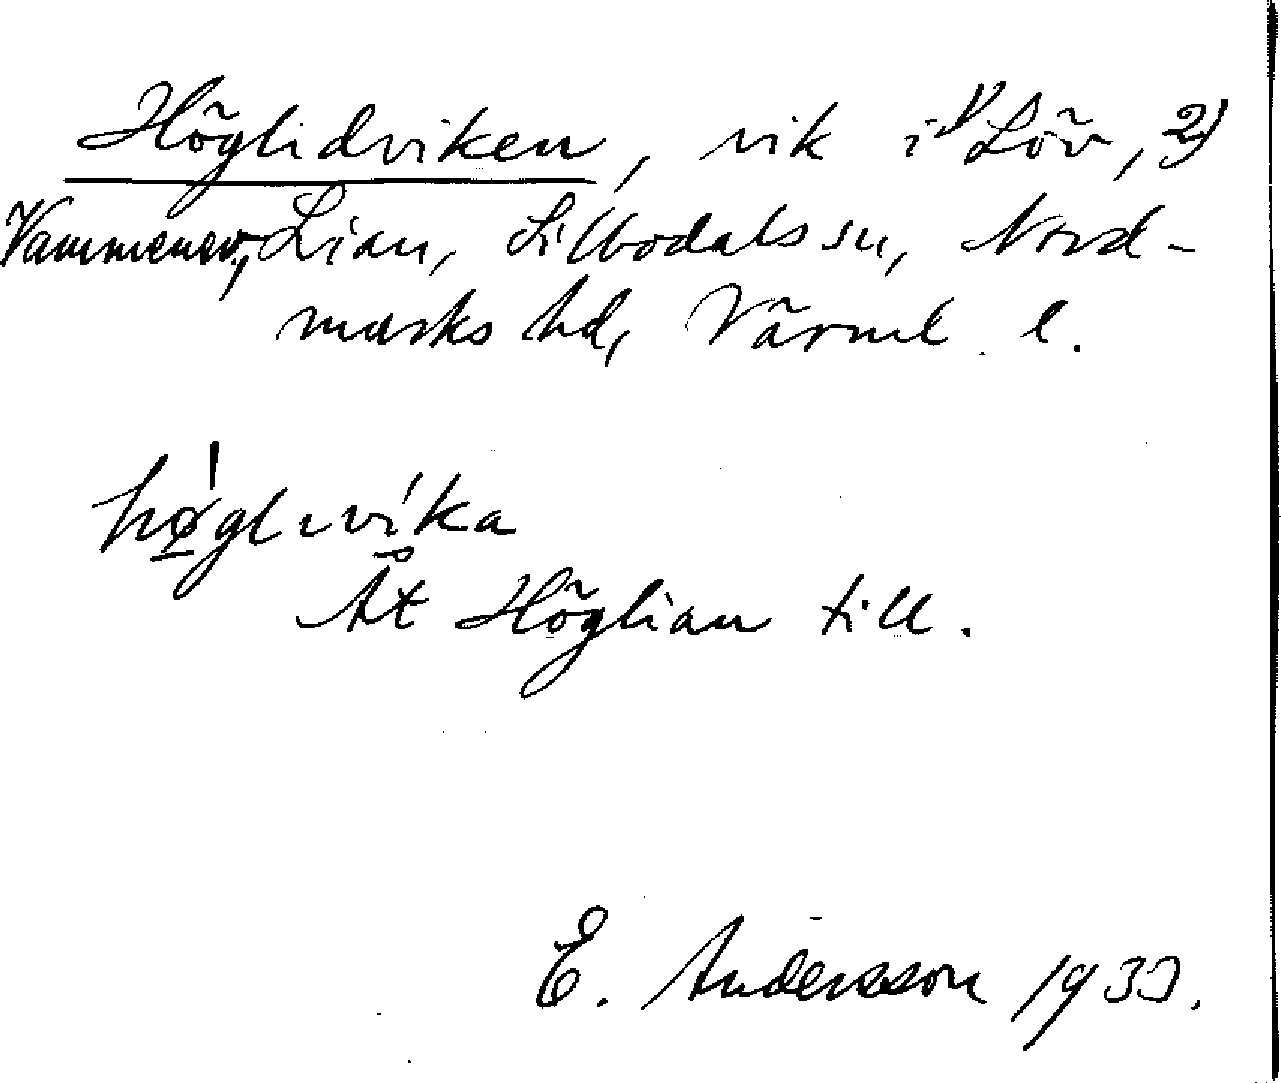 Höglidviken, vik i 1) Löv, 2)
Vammenev, Lian, Sillbodals sn, Nord-
marks hd, Värml. l.
hǿ̱glɪvíka
Åt Höglian till.
E. Andersson 1933.